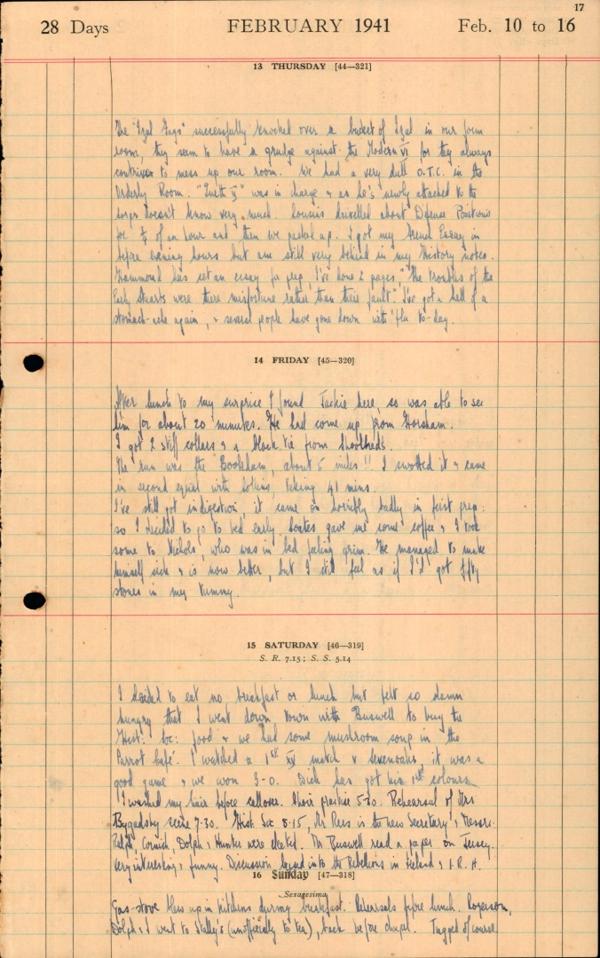 17
28 Days FEBRUARY 1941 Feb. 10 to 16
13 THURSDAY [44—321]
The "Izal Guys" successfully knocked over a bucket of Izal in our form
room, they seem to have a grudge against the Modern VI for they always
contrive to mess up our room. We had a very dull O.T.C. in the
Orderly Room. was in charge & as he's newly attached to the
Corps doesn't know very much. Cousins drivelled about Defence Positions
for of an hour and then we packed up. I got my French Essay in
before evening hours but am still very behind in my History notes.
Hammond has set an essay for prep I've done 2 pages "The troubles of the
Early Stuarts were there misfortune rather than their fault" I've got a hell of a
stomach-ache again, & several people have gone down with 'flu to-day.
14 FRIDAY [45—320]
After lunch to my surprise I found Jackie here, so was able to see
him for about 20 minutes. He had come up from Horsham.
I got 2 stiff collars & a black tie from Shoolbreds.
The run was the Bookham, about 5 miles!! I swotted it & came
in second equal with taking 41 mins.
I've still got indigestion, it came on horribly badly in first prep
so I decided to go to bed early. gave me some coffee & I took
some to Nichols, who was in bed feeling grim. He managed to make
himself sick & is now better, but I still feel as if I'd got fifty
stones in my tummy.
15 SATURDAY [46—319]
S. R. 7.15; S. S. 5.14
I decided to eat no breakfast or lunch but felt so damn
hungry that I went down town with Buswell to buy the
Hist: Soc: food & we had some mushroom soup in the
Parrot Café. I watched a 1st XV match v Sevenoaks, it was a
good game & we won 3-0. Dick has got his 1st colours
I washed my hair before callover. Choir practice 5-30. Rehearsal of Mrs
scene 7-30. Hist Soc 8-15, Mr Rees is the new Secretary &
Cornick, Dolph & Hunter were elected. Mr Buswell read a paper on Jersey.
Very interesting & funny. Discussion into the Rebellions in Ireland & I.R.A.
16 Sunday [47—318]
Sexagesima
Gas-stove blew up in kitchens during breakfast. Rehearsals before lunch. Rogerson,
Dolph & I went to Stally's (unofficially to tea), back before chapel. Tugged of course